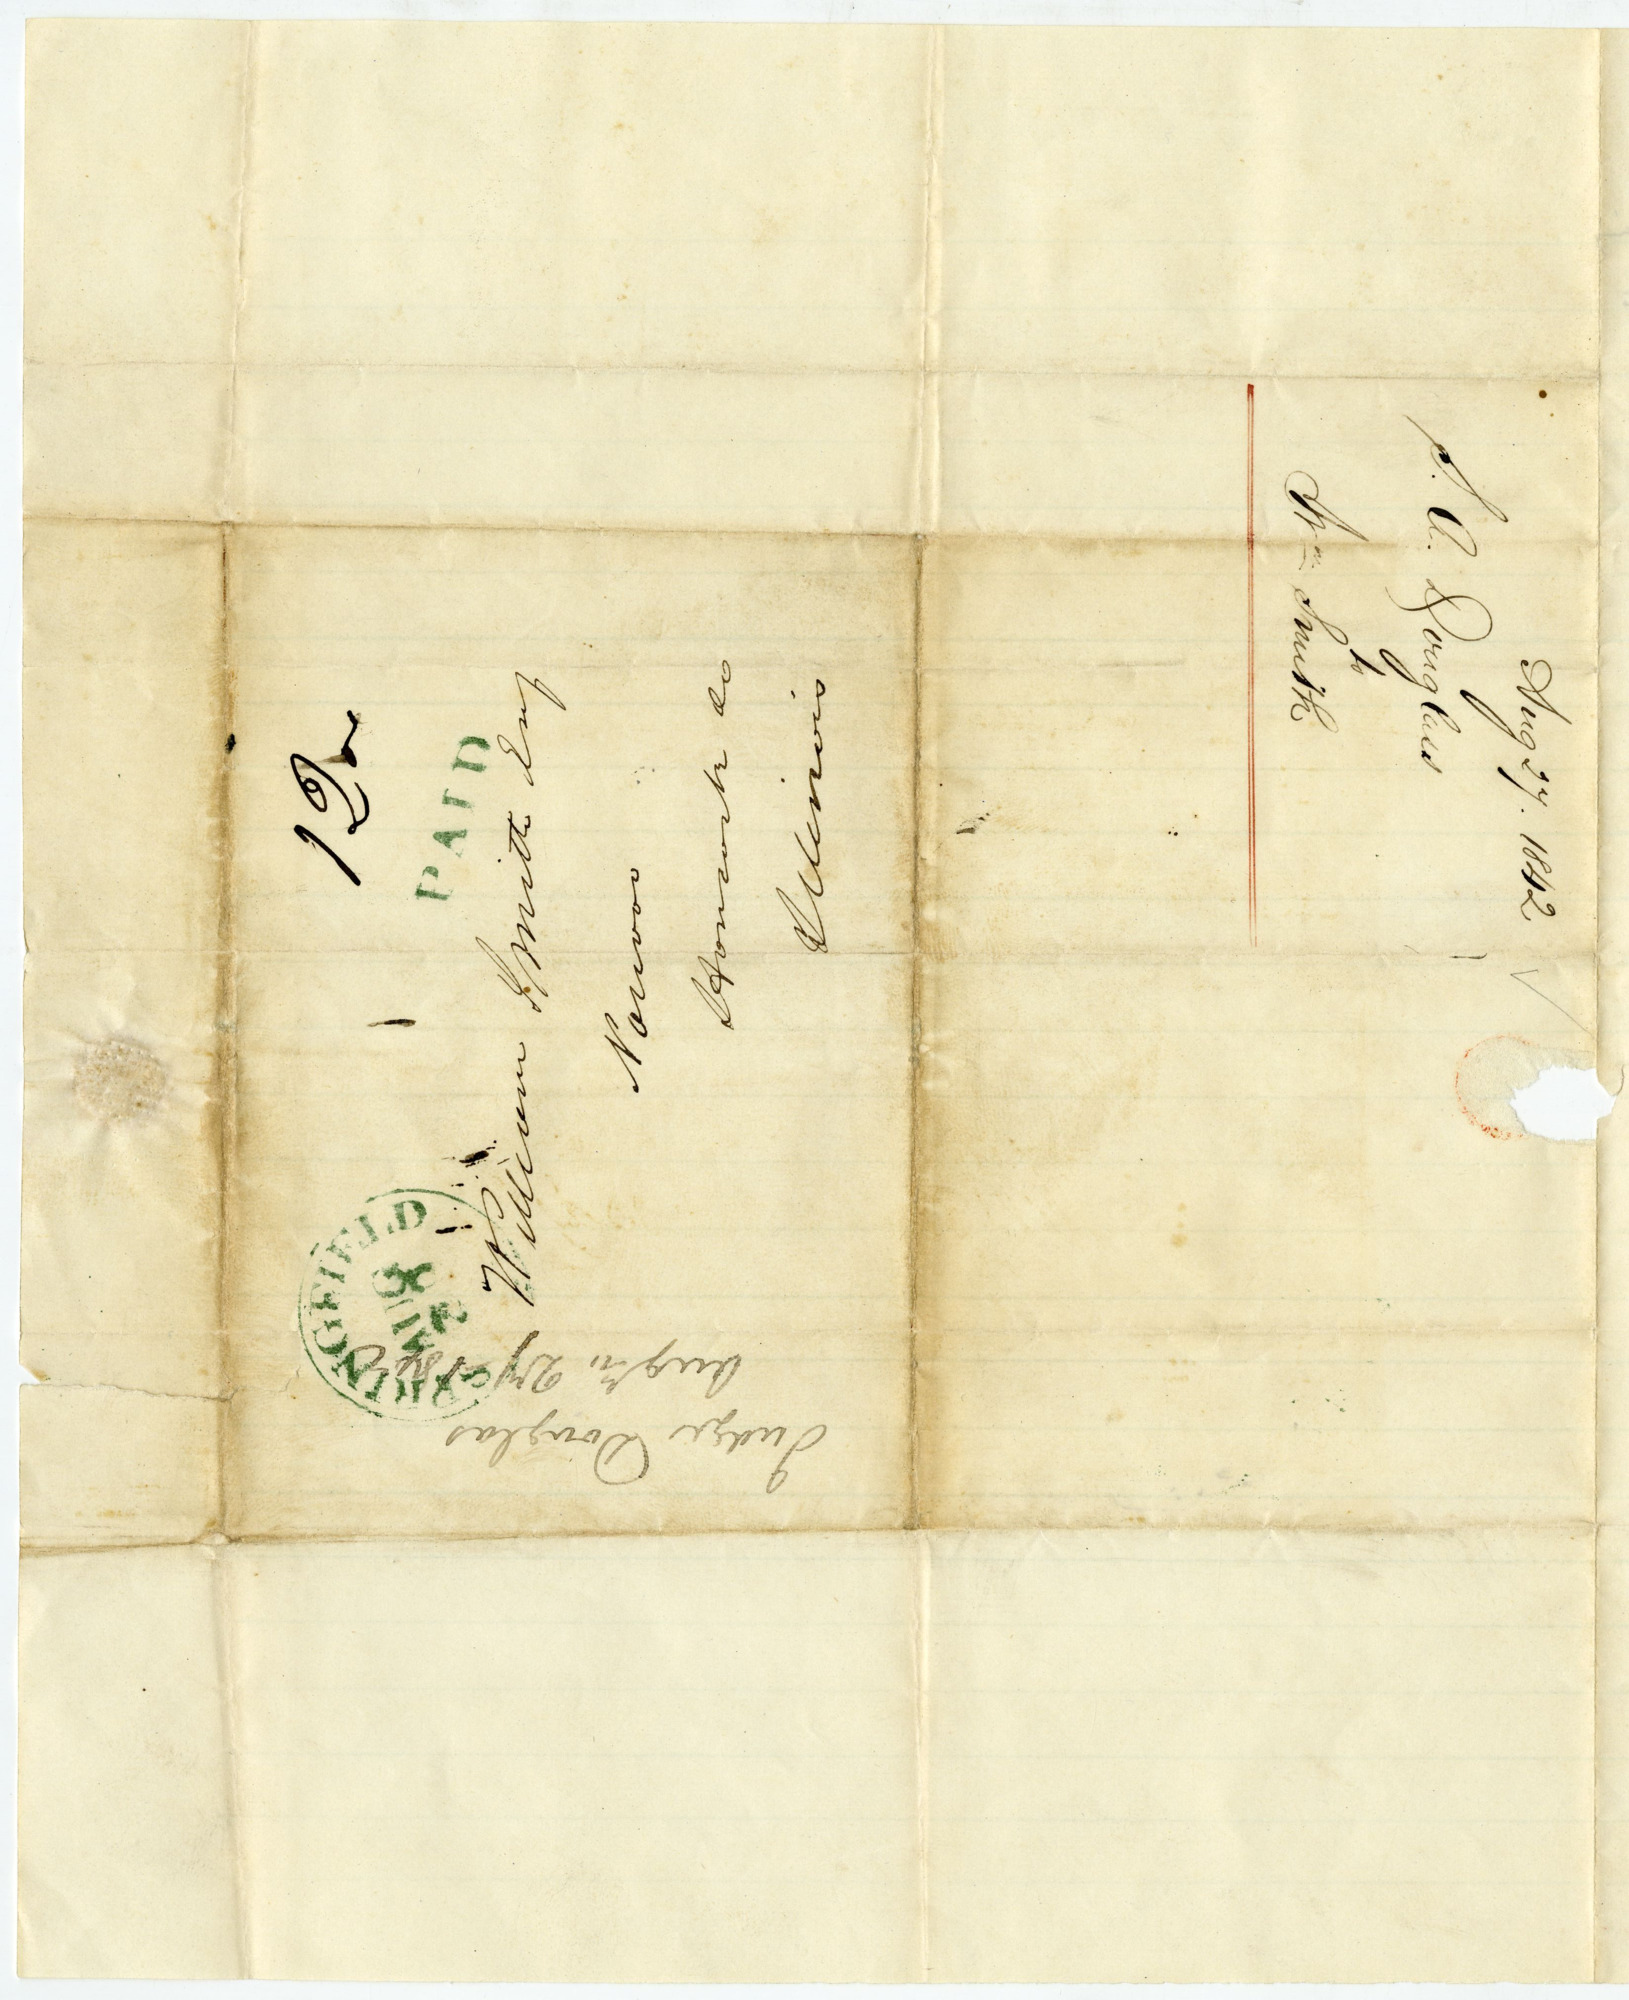 12
PAID
SPRINGFIELD
AUG
William Smith Esq
Nauvoo
Hancock Co
Illinois
Judge Douglas
Aug. 27 1842
Aug 27. 1842
S. A. Douglass
to
Wm Smith